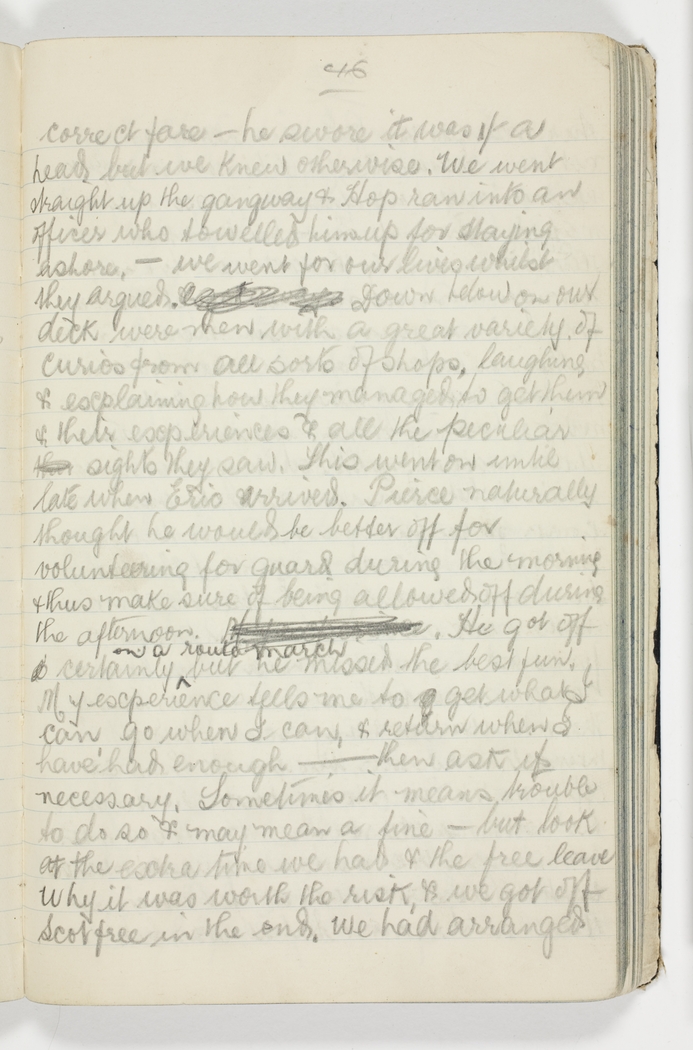 46
correct fare - he swore it was 1/- a
head but we knew otherwise. We went
straight up the gangway & Hop ran into an
officer who towelled him up for staying
ashore, - we went for our lives whilst
they argued. Down below on our
deck were men with a great variety of
curios from all sorts of shops, laughing
& explaining how they managed to get them
& their experiences & all the peculiar
sights they saw. This went on until
late when Eric arrived. Pierce naturally
thought he would be better off for
volunteering for guard during the morning
& thus make sure of being allowed off during
the afternoon. He got off
on a route march
certainly but he missed the best fun.
My experience tells me to get what I
can go when I can, & return when I
have had enough —— then ask if
necessary. Sometimes it means trouble
to do so & may mean a fine - but look
at the extra time we had & the free leave
Why it was worth the risk, & we got off
Scot free in the end. We had arranged